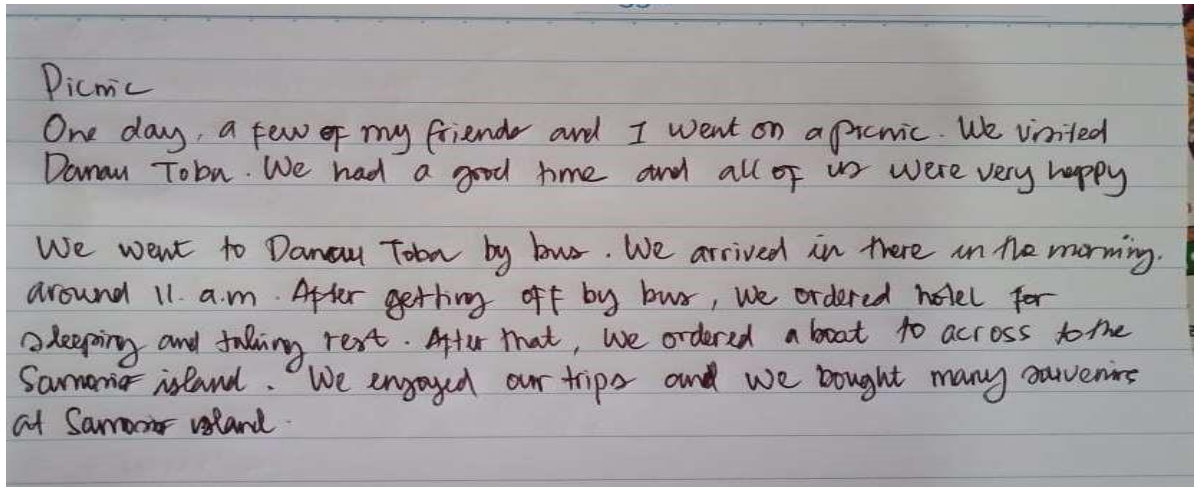 Picnic
One day, a few of my friends and I went on a picnic. We visited
Danau Toba. We had a good time and all of us were very happy
We went to Danau Toba by bus. We arrived in there in the morning.
around 11. a.m. After getting off by bus, we ordered hotel for
sleeping and taking rest. After that, we ordered a boat to across to the
Samosir island. We enjoyed our trips and we bought many souvenirs
at Samosir island.